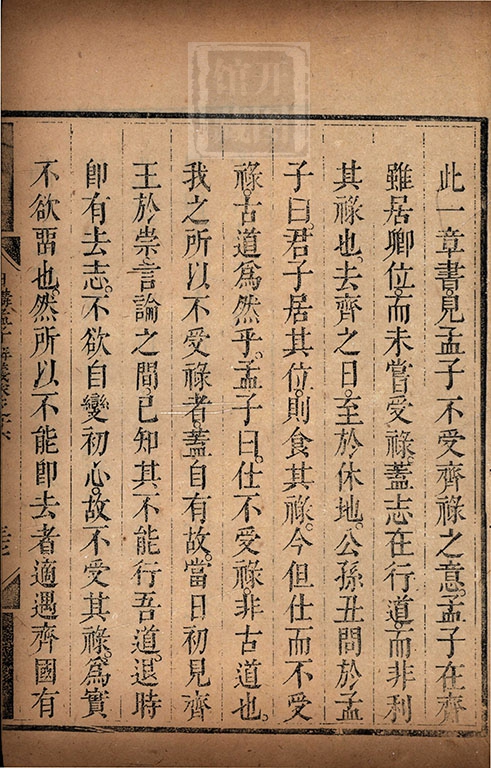 此一章書見孟子不受齊祿之意孟子在齊
雖居卿位而未嘗受祿蓋志在行道而非利
其祿也去齊之日至於休地公孫丑問於孟
子曰君子居其位則食其祿今但仕而不受
祿古道爲然乎孟子曰仕不受祿非古道也
我之所以不受祿者蓋自有故當日初見齊
王於崇言論之間已知其不能行吾道退時
卽有去志不欲自變初心故不受其祿爲實
不欲畱也然所以不能卽去者適遇齊國有